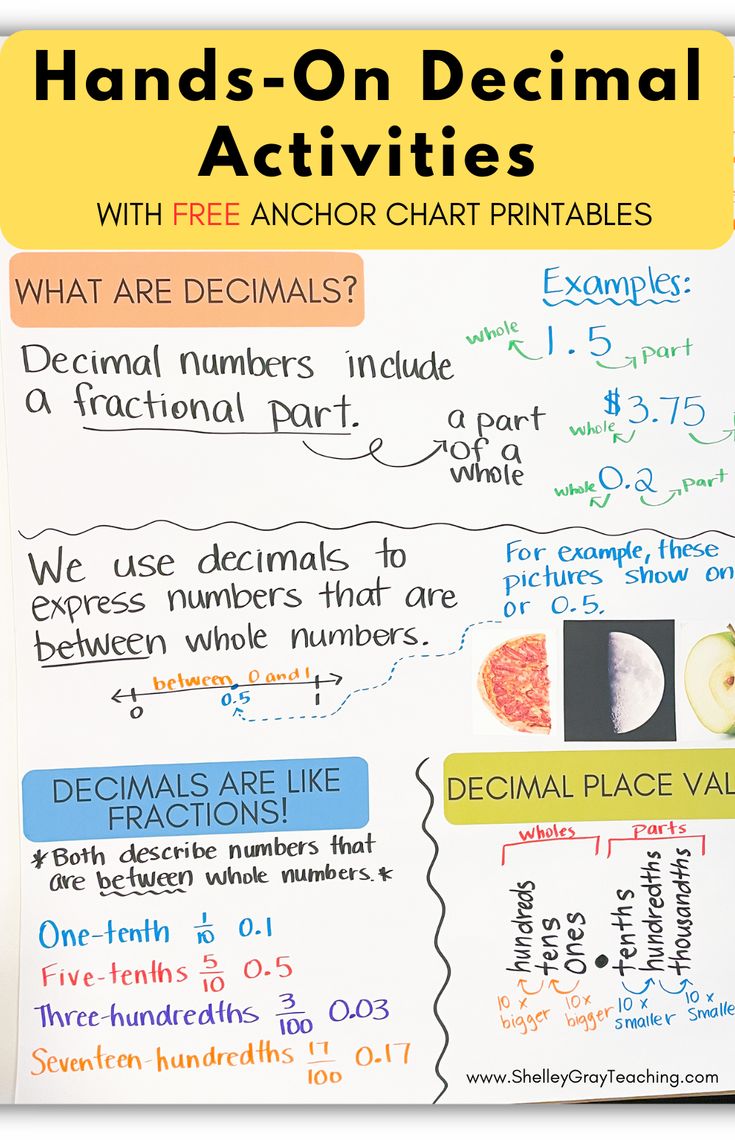 Hands-On Decimal
Activities
WITH FREE ANCHOR CHART PRINTABLES
WHAT ARE DECIMALS?
Decimal numbers include
a fractional part.
a part
of a
whole
Examples:
whole 1.5 part
whole $3.75
whole 0.2 part
We use decimals to
express numbers that are
between whole numbers.
between 0 and 1
0 0.5 1
For example, these
pictures show on
or 0.5.
DECIMALS ARE LIKE
FRACTIONS!
*Both describe numbers that
are between whole numbers.*
One-tenth 1/10 0.1
Five-tenths 5/10 0.5
Three-hundredths 3/100 0.03
Seventeen-hundredths 17/100 0.17
DECIMAL PLACE VAL
wholes parts
hundreds
tens
ones
.
tenths
hundredths
thousandths
10 x
bigger
10 x
bigger
10 x
smaller
10 x
smalle
www.ShelleyGrayTeaching.com